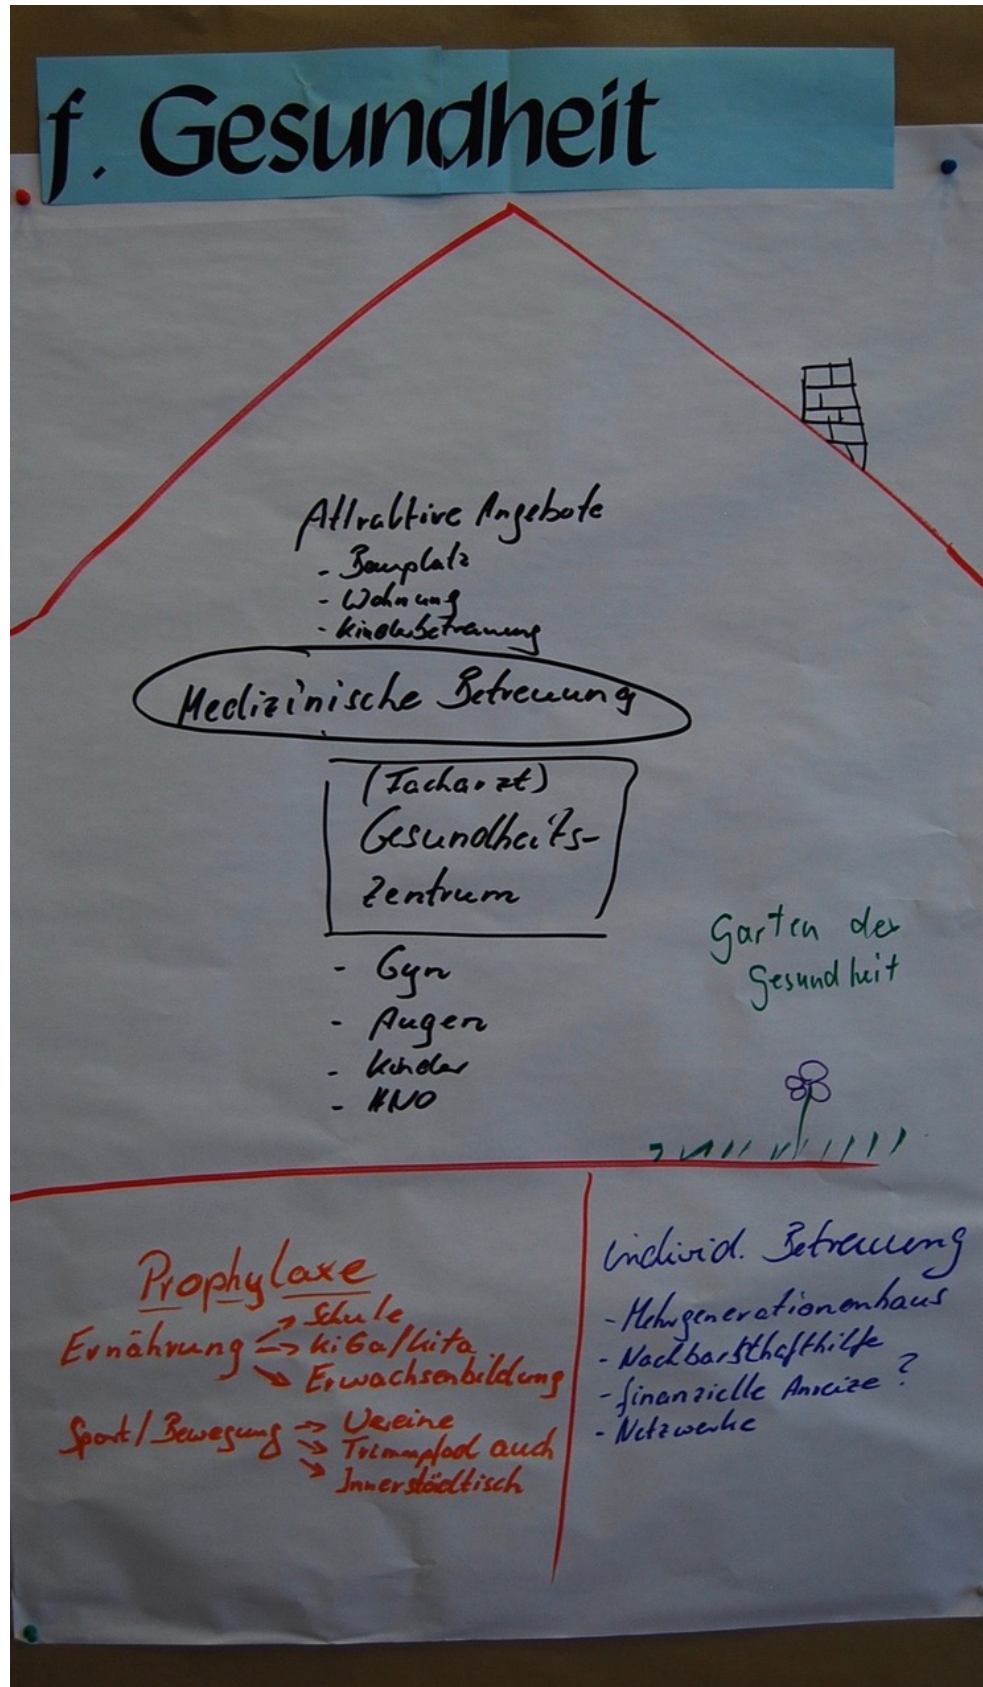 f. Gesundheit
Attraktive Angebote
- Bauplatz
- Wohnung
- Kinderbetreuung
Medizinische Betreuung
(Facharzt)
Gesundheits-
Zentrum
- Gyn
- Augen
- Kinder
- HNO
Garten der
Gesundheit
Prophylaxe
Ernährung → Schule
→ KiGa/Kita
→ Erwachsenbildung
Sport/Bewegung → Vereine
→ Trimmpfad auch
→ Innerstädtisch
individ. Betreuung
- Mehrgenerationenhaus
- Nachbarsthafthilfe
- finanzielle Anreize?
- Netzwerke